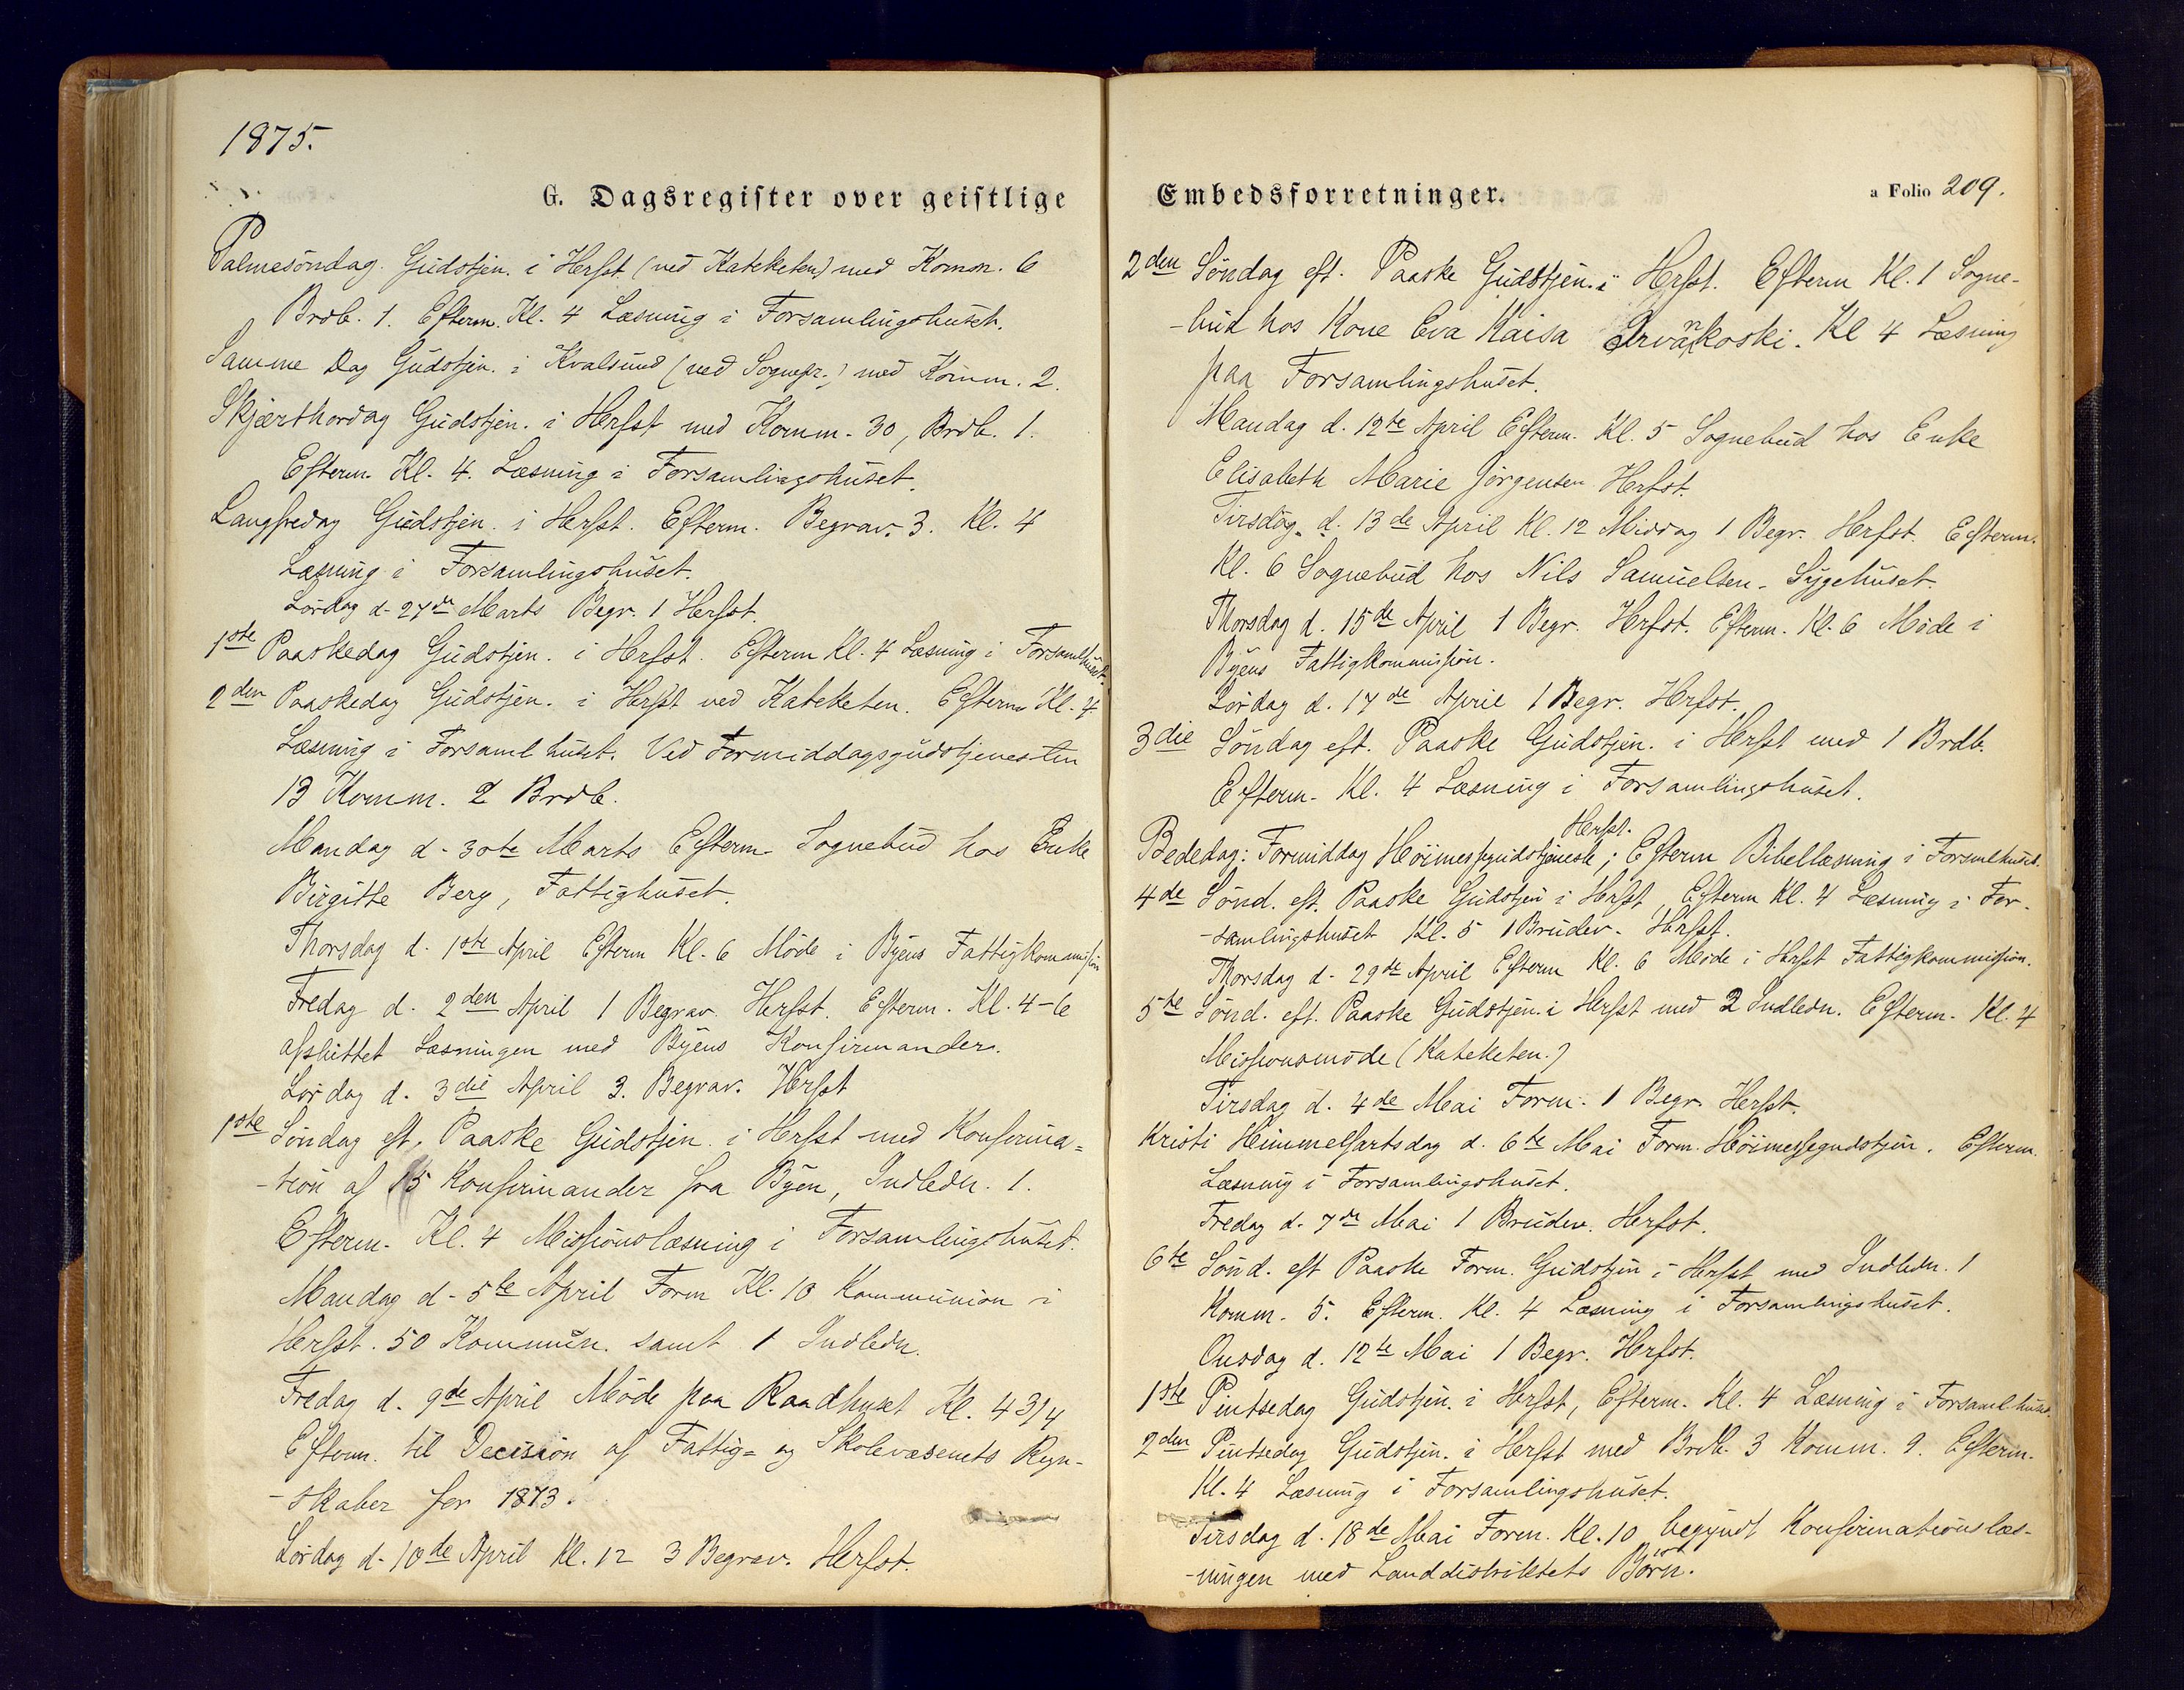 1875.
G. Dagsregister over geistlige
Palmesöndag. Gudstjen. i Hrfst (ved Kateketen) med Komm. 6
Brdb. 1. Efterm. Kl. 4 Læsning i Forsamlingshuset.
Samme Dag Gudstjen. i Kvalsund (ved Sognepr.) med Komm. 2.
Skjærthordag Gudstjen. i Hrfst med Komm. 30, Brdb. 1.
Efterm. Kl. 4. Læsning i Forsamlingshuset.
Langfredag Gudstjen. i Hrfst. Efterm. Begrav. 3. Kl. 4
Læsning i Forsamlingshuset.
Lördag d. 27de Marts Begr. 1 Hrfst.
1ste Paaskedag Gudstjen. i Hrfst. Efterm Kl. 4 Læsning i Forsamlhuset.
2den Paaskedag Gudstjen. i Hrfst ved Kateketen. Efterm Kl. 4
Læsning i Forsamlhuset. Ved Formiddagsgudstjenesten
13 Komm. 2 Brdb.
Mandag d. 30te Marts Efterm. Sognebud hos Enke
Birgitte Berg, Fattighuset.
Thorsdag d. 1ste April Efterm Kl. 6 Möde i Byens Fattigkommission
Fredag d. 2den April 1 Begrav. Hrfst. Efterm. Kl. 4-6
afsluttet Læsningen med Byens Konfirmander.
Lördag d. 3die April 3. Begrav. Hrfst
1ste Söndag eft. Paaske Gudstjen. i Hrfst med Konfirma=
-tion af 15 Konfirmander fra Byen, Indledn. 1.
Efterm. Kl. 4 Missionslæsning i Forsamlingshuset.
Mandag d. 5te April Form Kl. 10 Kommunion i
Hrfst. 50 Kommun. samt 1 Indledn.
Fredag d. 9de April Möde paa Raadhuset Kl. 4 3/4
Efterm. til Decision af Fattig= og Skolevæsenets Regn-
-skaber for 1873.
Lördag d. 10de April Kl. 12 3 Begrav. Hrfst.
Embedsforretninger.
a Folio 209.
2den Söndag eft. Paaske Gudstjen. i Hrfst. Efterm Kl. 1 Sogne-
-bud hos Kone Eva Kaisa Ervänkoski. Kl 4 Læsning
paa Forsamlingshuset.
Mandag d. 12te April Efterm. Kl. 5 Sognebud hos Enke
Elisabeth Marie Jörgensen Hrfst.
Tirsdag d. 13de April Kl. 12 Middag 1 Begr. Hrfst. Efterm.
Kl. 6 Sognebud hos Nils Samuelsen. Sygehuset.
Thorsdag d. 15de April 1 Begr. Hrfst. Efterm. Kl. 6 Möde i
Byens Fattigkommission.
Lördag d. 17de April 1 Begr. Hrfst.
3die Söndag eft. Paaske Gudstjen. i Hrfst med 1 Brdb.
Efterm. Kl. 4 Læsning i Forsamlingshuset.
Hrfst.
Bededag: Formiddag Höimessegudstjeneste; Efterm Bibellæsning i Forsmlhuset.
4de Sönd. eft. Paaske Gudstjen i Hrfst, Efterm Kl. 4 Læsning i For-
-samlingshuset Kl. 5 1 Brudev. Hrfst.
Thorsdag d. 29de April Efterm Kl. 6 Möde i Hrfst Fattigkommission.
5te Sönd. eft. Paaske Gudstjen. i Hrfst med 2 Indledn. Efterm. Kl. 4
Missionsmöde (Kateketen.)
Tirsdag d. 4de Mai Form. 1 Begr. Hrfst.
Kristi Himmelfartsdag d. 6te Mai Form. Höimessegudstjen. Efterm.
Læsning i Forsamlingshuset.
Fredag d. 7de Mai 1 Brudev. Hrfst.
6te Sönd. eft Paaske Form. Gudstjen i Hrfst med Indledn. 1
Komm. 5. Efterm. Kl. 4 Læsning i Forsamlingshuset.
Onsdag d. 12te Mai 1 Begr. Hrfst.
1ste Pintsedag Gudstjen. i Hrfst, Efterm. Kl. 4 Læsning i Forsamlhuset.
2den Pintsedag Gudstjen. i Hrfst med Brdb. 3 Komm. 9. Efterm.
Kl. 4 Læsning i Forsamlingshuset.
Tirsdag d. 18de Mai Form. Kl. 10 begyndt Konfirmationslæs-
-ningen med Landdistriktets Börn.